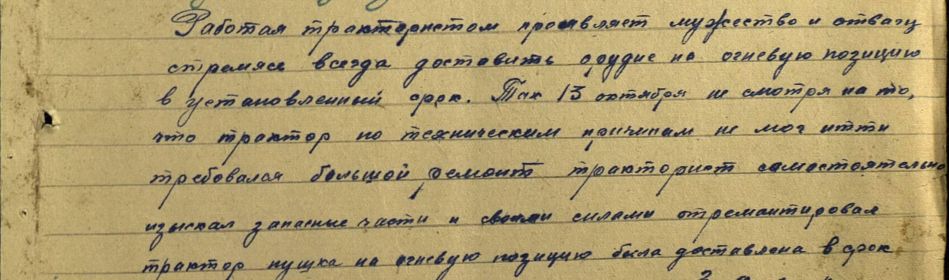 Работая трактористом проявляет мужество и отвагу
стремясь всегда доставить орудие на огневую позицию
в установленный срок. Так 13 октября не смотря на то,
что трактор по техническим причинам не мог итти
требовался большой ремонт тракторист самостоятельно
изыскал запасные части и своими силами отремонтировал
трактор пушка на огневую позицию была доставлена в срок